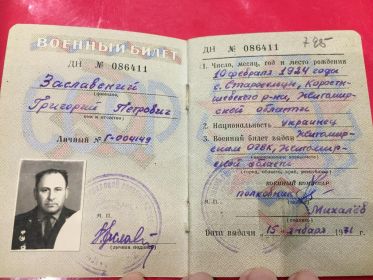 ВОЕННЫЙ БИЛЕТ
ДН № 086411
Заславский
(фамилия)
Григорий Петрович
(имя и отчество)
Личный № Г-004149
М. П.
(личная подпись)
ДН № 086411
785
1. Число, месяц, год и место рождения
10 февраля 1924 года
с. Старосельцы, Коросты-
шевского р-на, Житомир-
ской области
2. Национальность украинец
3. Военный билет выдан Житомир-
ским ОГВК, Житомир-
ской области
(город, область, край, республика)
военный комиссар
полковник
Михалёв
М. П.
(подпись)
Дата выдачи „15" января 1971 г.